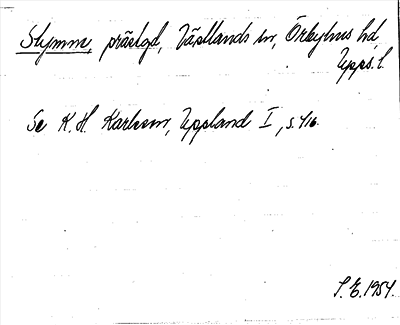 Stymne, prästgd, Västlands sn, Örbyhus hd,
Upps. l.
Se K. H. Karlsson, Uppland I, s. 416.
S. E. 1954.